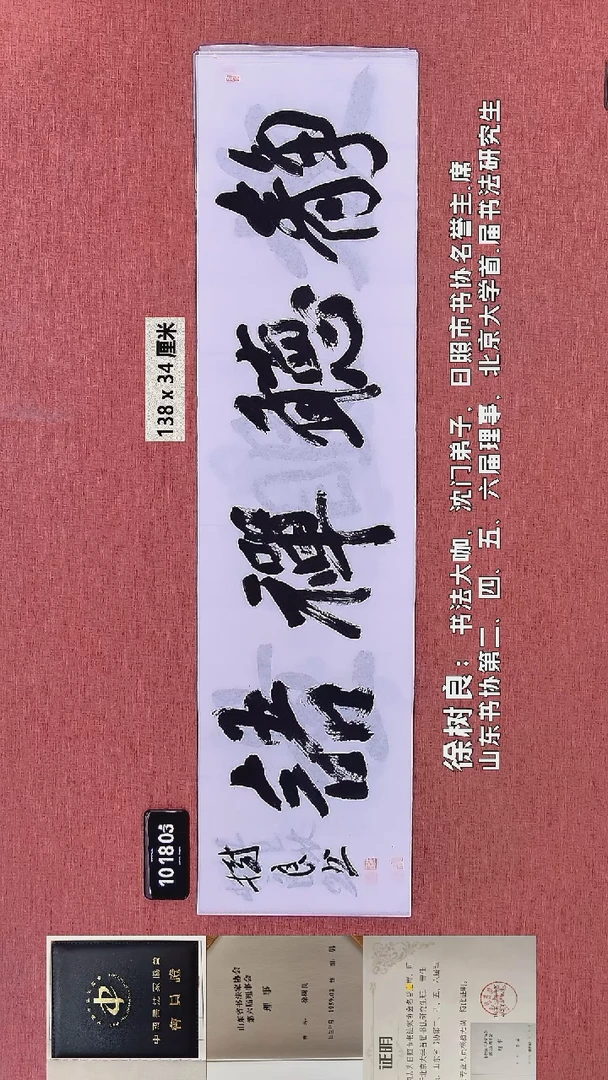 138 x 34 厘米
静聽禪語
樹良书
101803
徐树良：书法大咖、沈门弟子、日照市书协名誉主.席
山东书协第二、四、五、六届理事、北京大学首.届书法研究生
中國書法家協會
會員證
山东省书法家协会
第六届理事会
理 事
证明